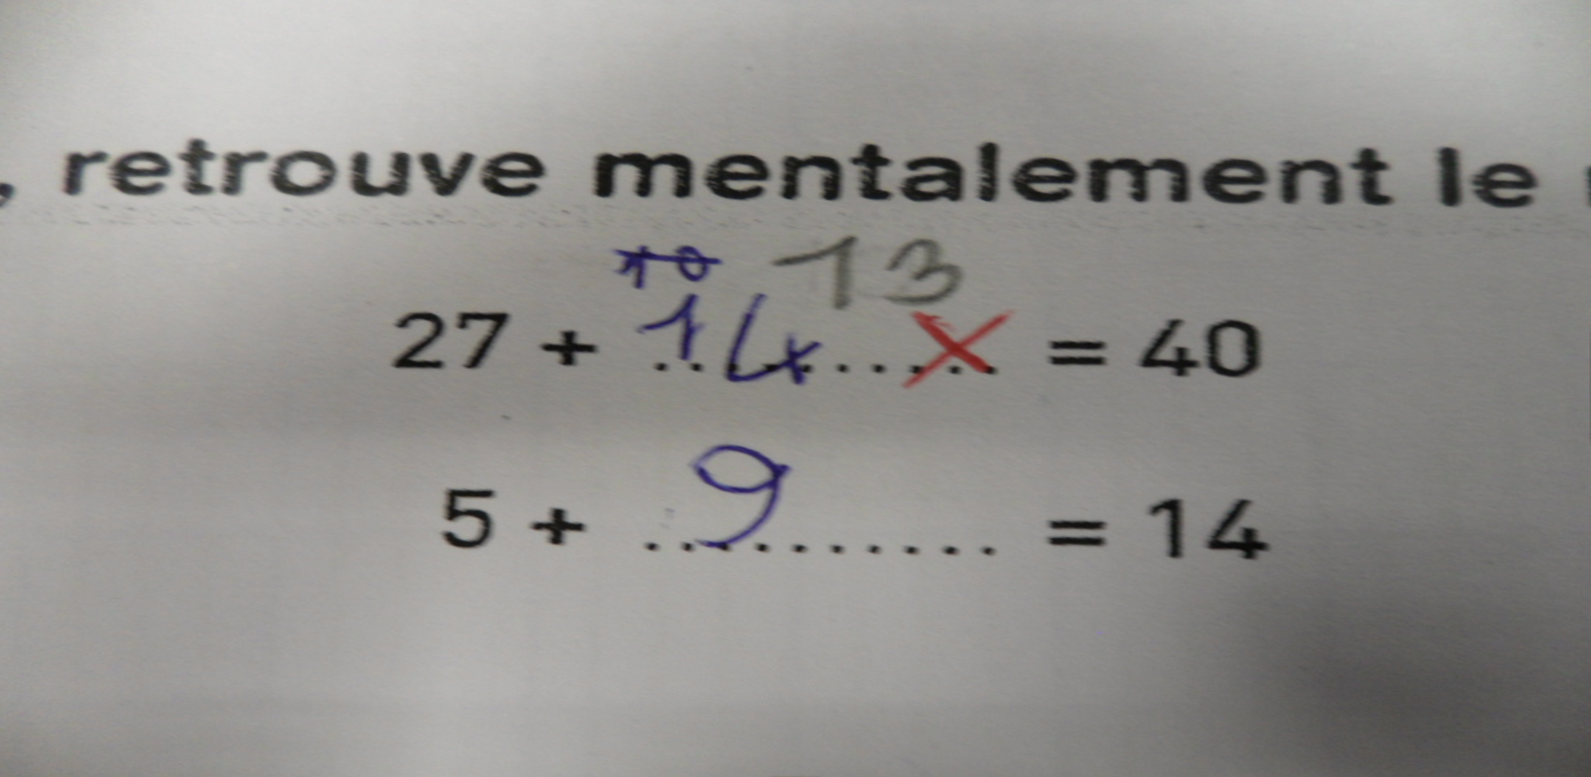 , retrouve mentalement le
10 13
27 + 14 .......... X = 40
5 + 9 .......... = 14